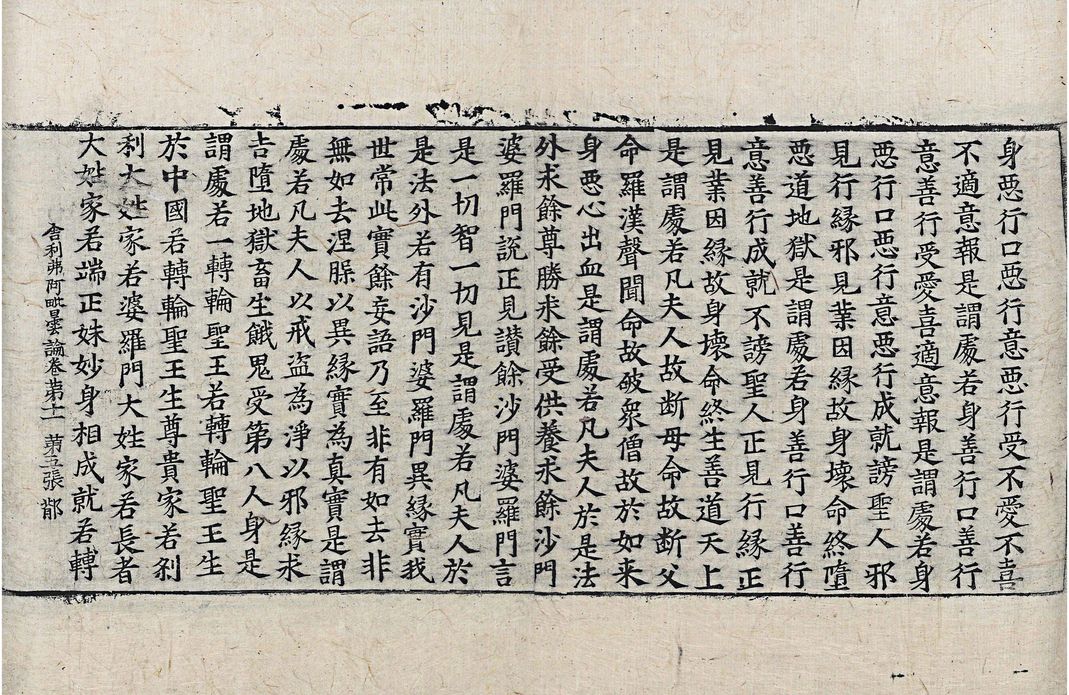 身惡行口惡行意惡行受不愛不喜
不適意報是謂處若身善行口善行
意善行受愛喜適意報是謂處若身
惡行口惡行意惡行成就謗聖人邪
見行緣邪見業因緣故身壞命終墮
惡道地獄是謂處若身善行口善行
意善行成就不謗聖人正見行緣正
見業因緣故身壞命終生善道天上
是謂處若凡夫人故斷母命故斷父
命羅漢聲聞命故破衆僧故於如来
身惡心出血是謂處若凡夫人於是法
外求餘尊勝求餘受供養求餘沙門
婆羅門説正見讃餘沙門婆羅門言
是一切智一切見是謂處若凡夫人於
是法外若有沙門婆羅門異緣實我
世常此實餘妄語乃至非有如去非
無如去涅槃以異緣實為真實是謂
處若凡夫人以戒盗為淨以邪緣求
吉墮地獄畜生餓鬼受第八人身是
謂處若一轉輪聖王若轉輪聖王生
於中國若轉輪聖王生尊貴家若刹
利大姓家若婆羅門大姓家若長者
大姓家若端正姝妙身相成就若轉
舍利弗阿毗曇論卷第十一　第五張　鄁